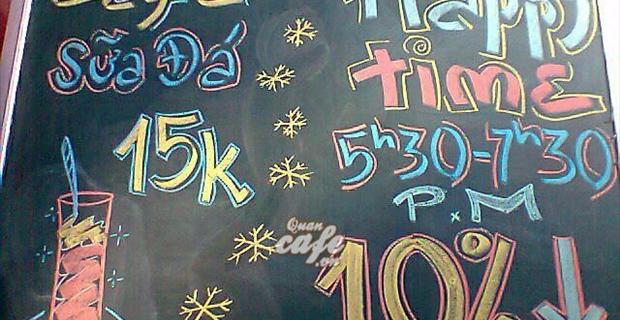 Cafe
Sữa Đá
15K
Happy
TIME
5h30-7h30
P.M
10%
Quan
cafe
.com